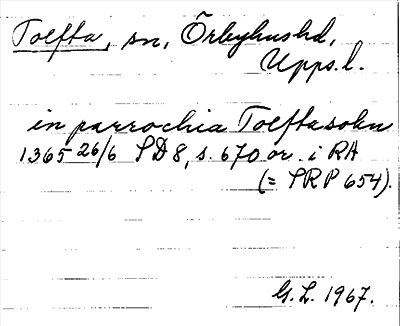 Tolfta, sn, Örbyhushd,
Upps.l.
in parrochia Tolftasokn
1365 26/6 SD 8, s. 670 or. i RA
(= SRP 654).
G.L. 1967.